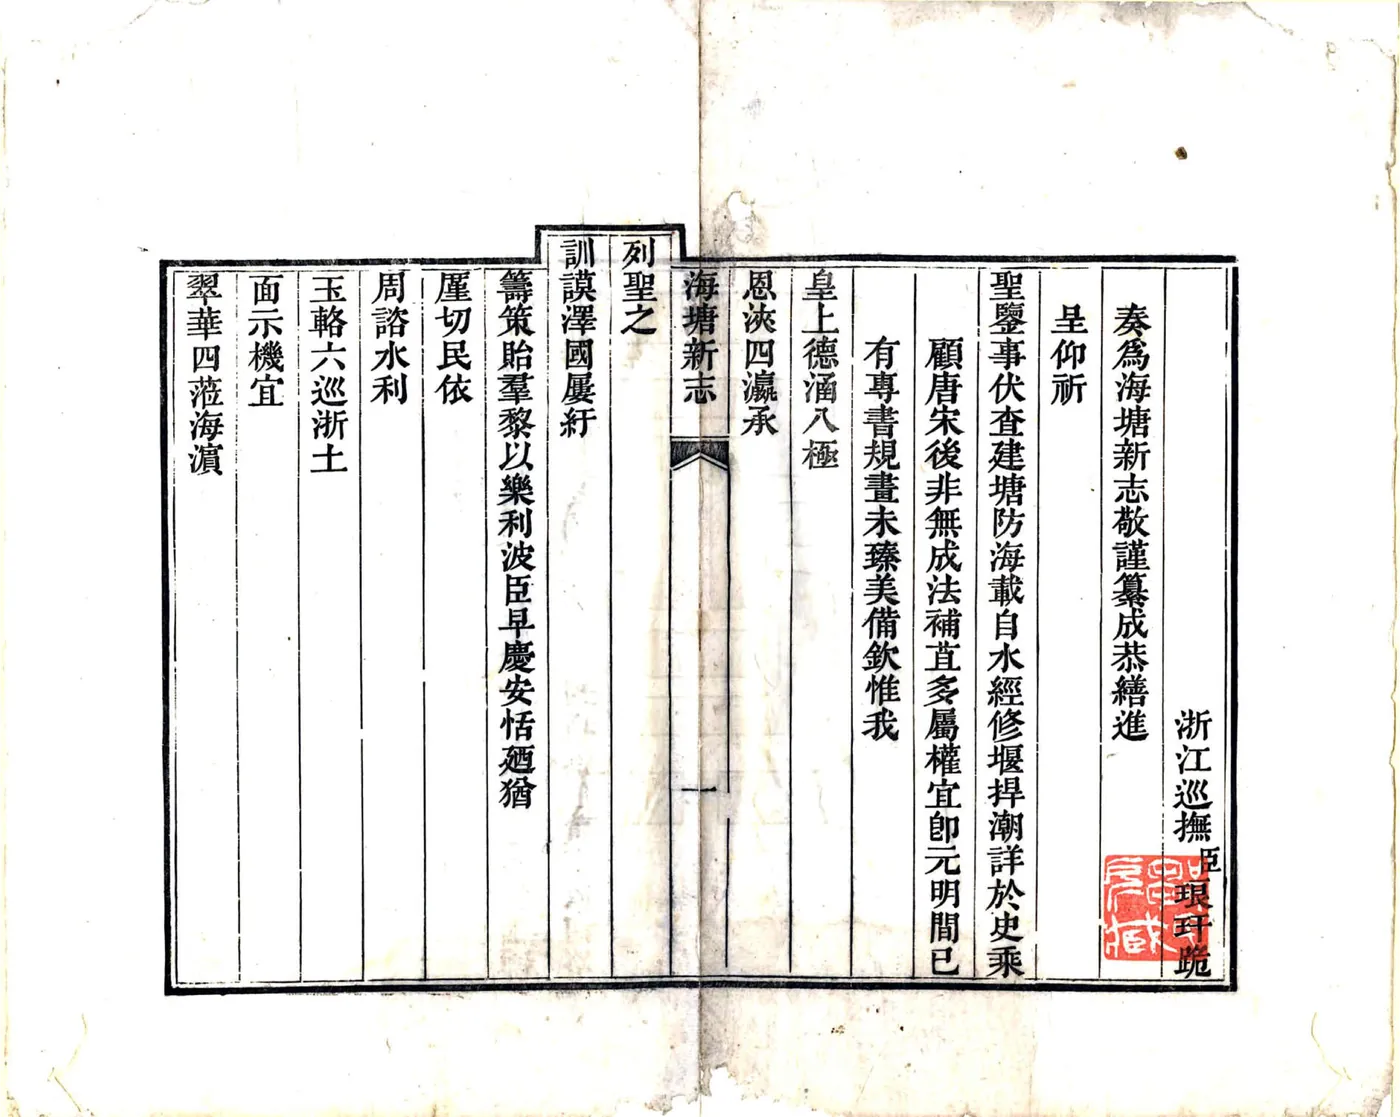 浙江巡撫臣琅玕跪
奏爲海塘新志敬謹纂成恭繕進
呈仰祈
聖鑒事伏查建塘防海載自水經修堰捍潮詳於史乘
顧唐宋後非無成法補苴多屬權宜卽元明間已
有專書規畫未臻美備欽惟我
皇上德涵八極
恩浹四瀛承
海塘新志
一
列聖之
訓謨澤國屢紆
籌策貽羣黎以樂利波臣早慶安恬廼猶
厪切民依
周諮水利
玉輅六巡浙土
面示機宜
翠華四蒞海濵